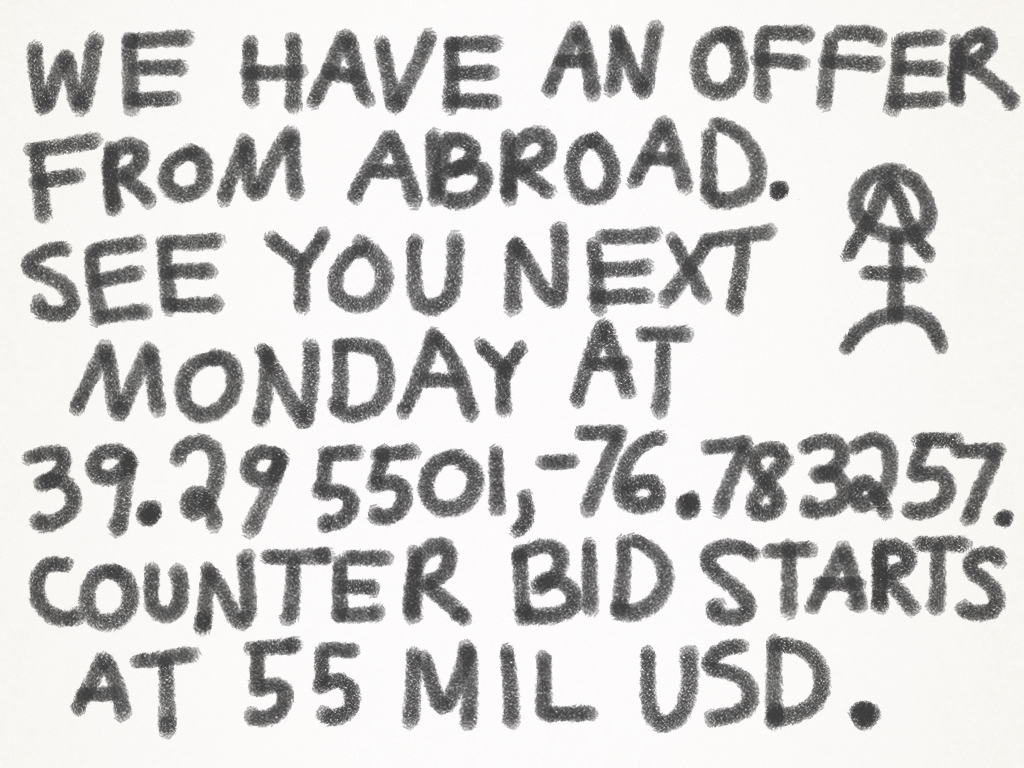 WE HAVE AN OFFER
FROM ABROAD.
SEE YOU NEXT
MONDAY AT
39.295501,-76.783257.
COUNTER BID STARTS
AT 55 MIL USD.